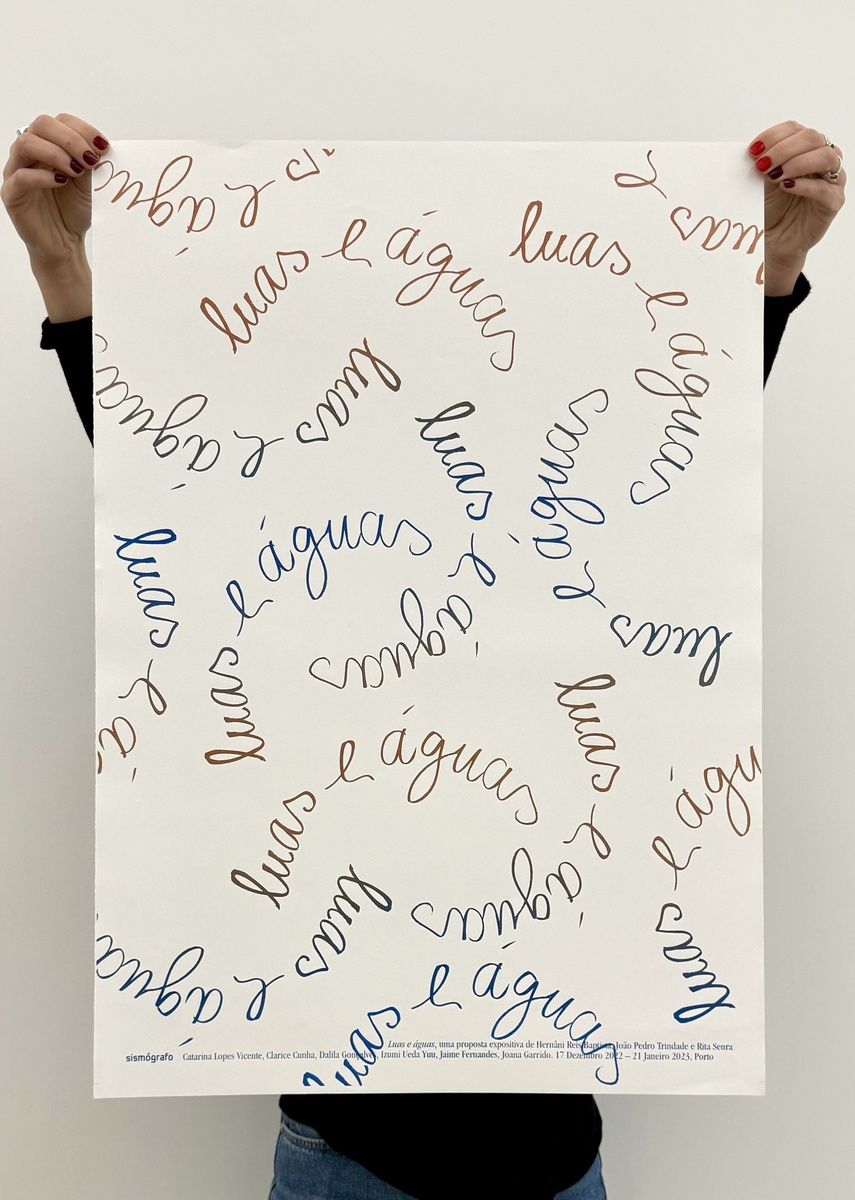 s e água
luas e
luas e águas
luas e águas
luas e águas
luas e águas
luas e águas
luas e águas
luas e á
luas e águas
luas e águas
luas e águ
luas e água
luas e águas
Luas e águas, uma proposta expositiva de Hernâni Reis Baptista, João Pedro Trindade e Rita Senra
sismógrafo Catarina Lopes Vicente, Clarice Cunha, Dalila Gonçalves, Izumi Ueda Yuu, Jaime Fernandes, Joana Garrido. 17 Dezembro 2022 – 21 Janeiro 2023, Porto